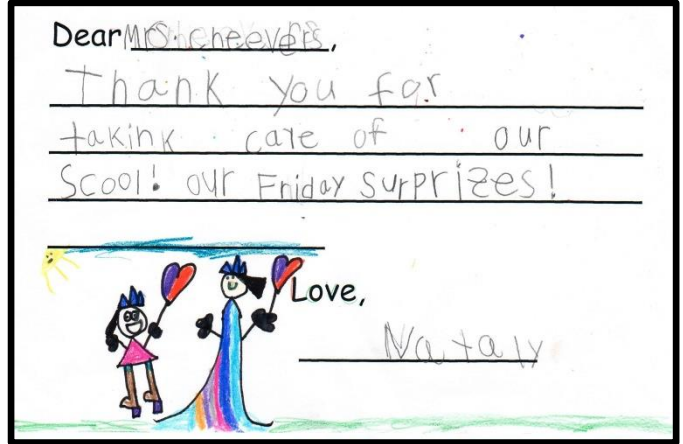 Dear Mrs. cheevers,
Thank you for
takink care of our
Scool! our Friday surprizes!
Love,
Nataly